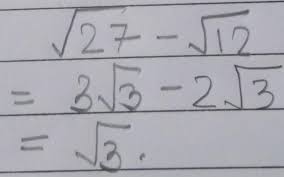 √27 - √12
= 3√3 - 2√3
= √3.